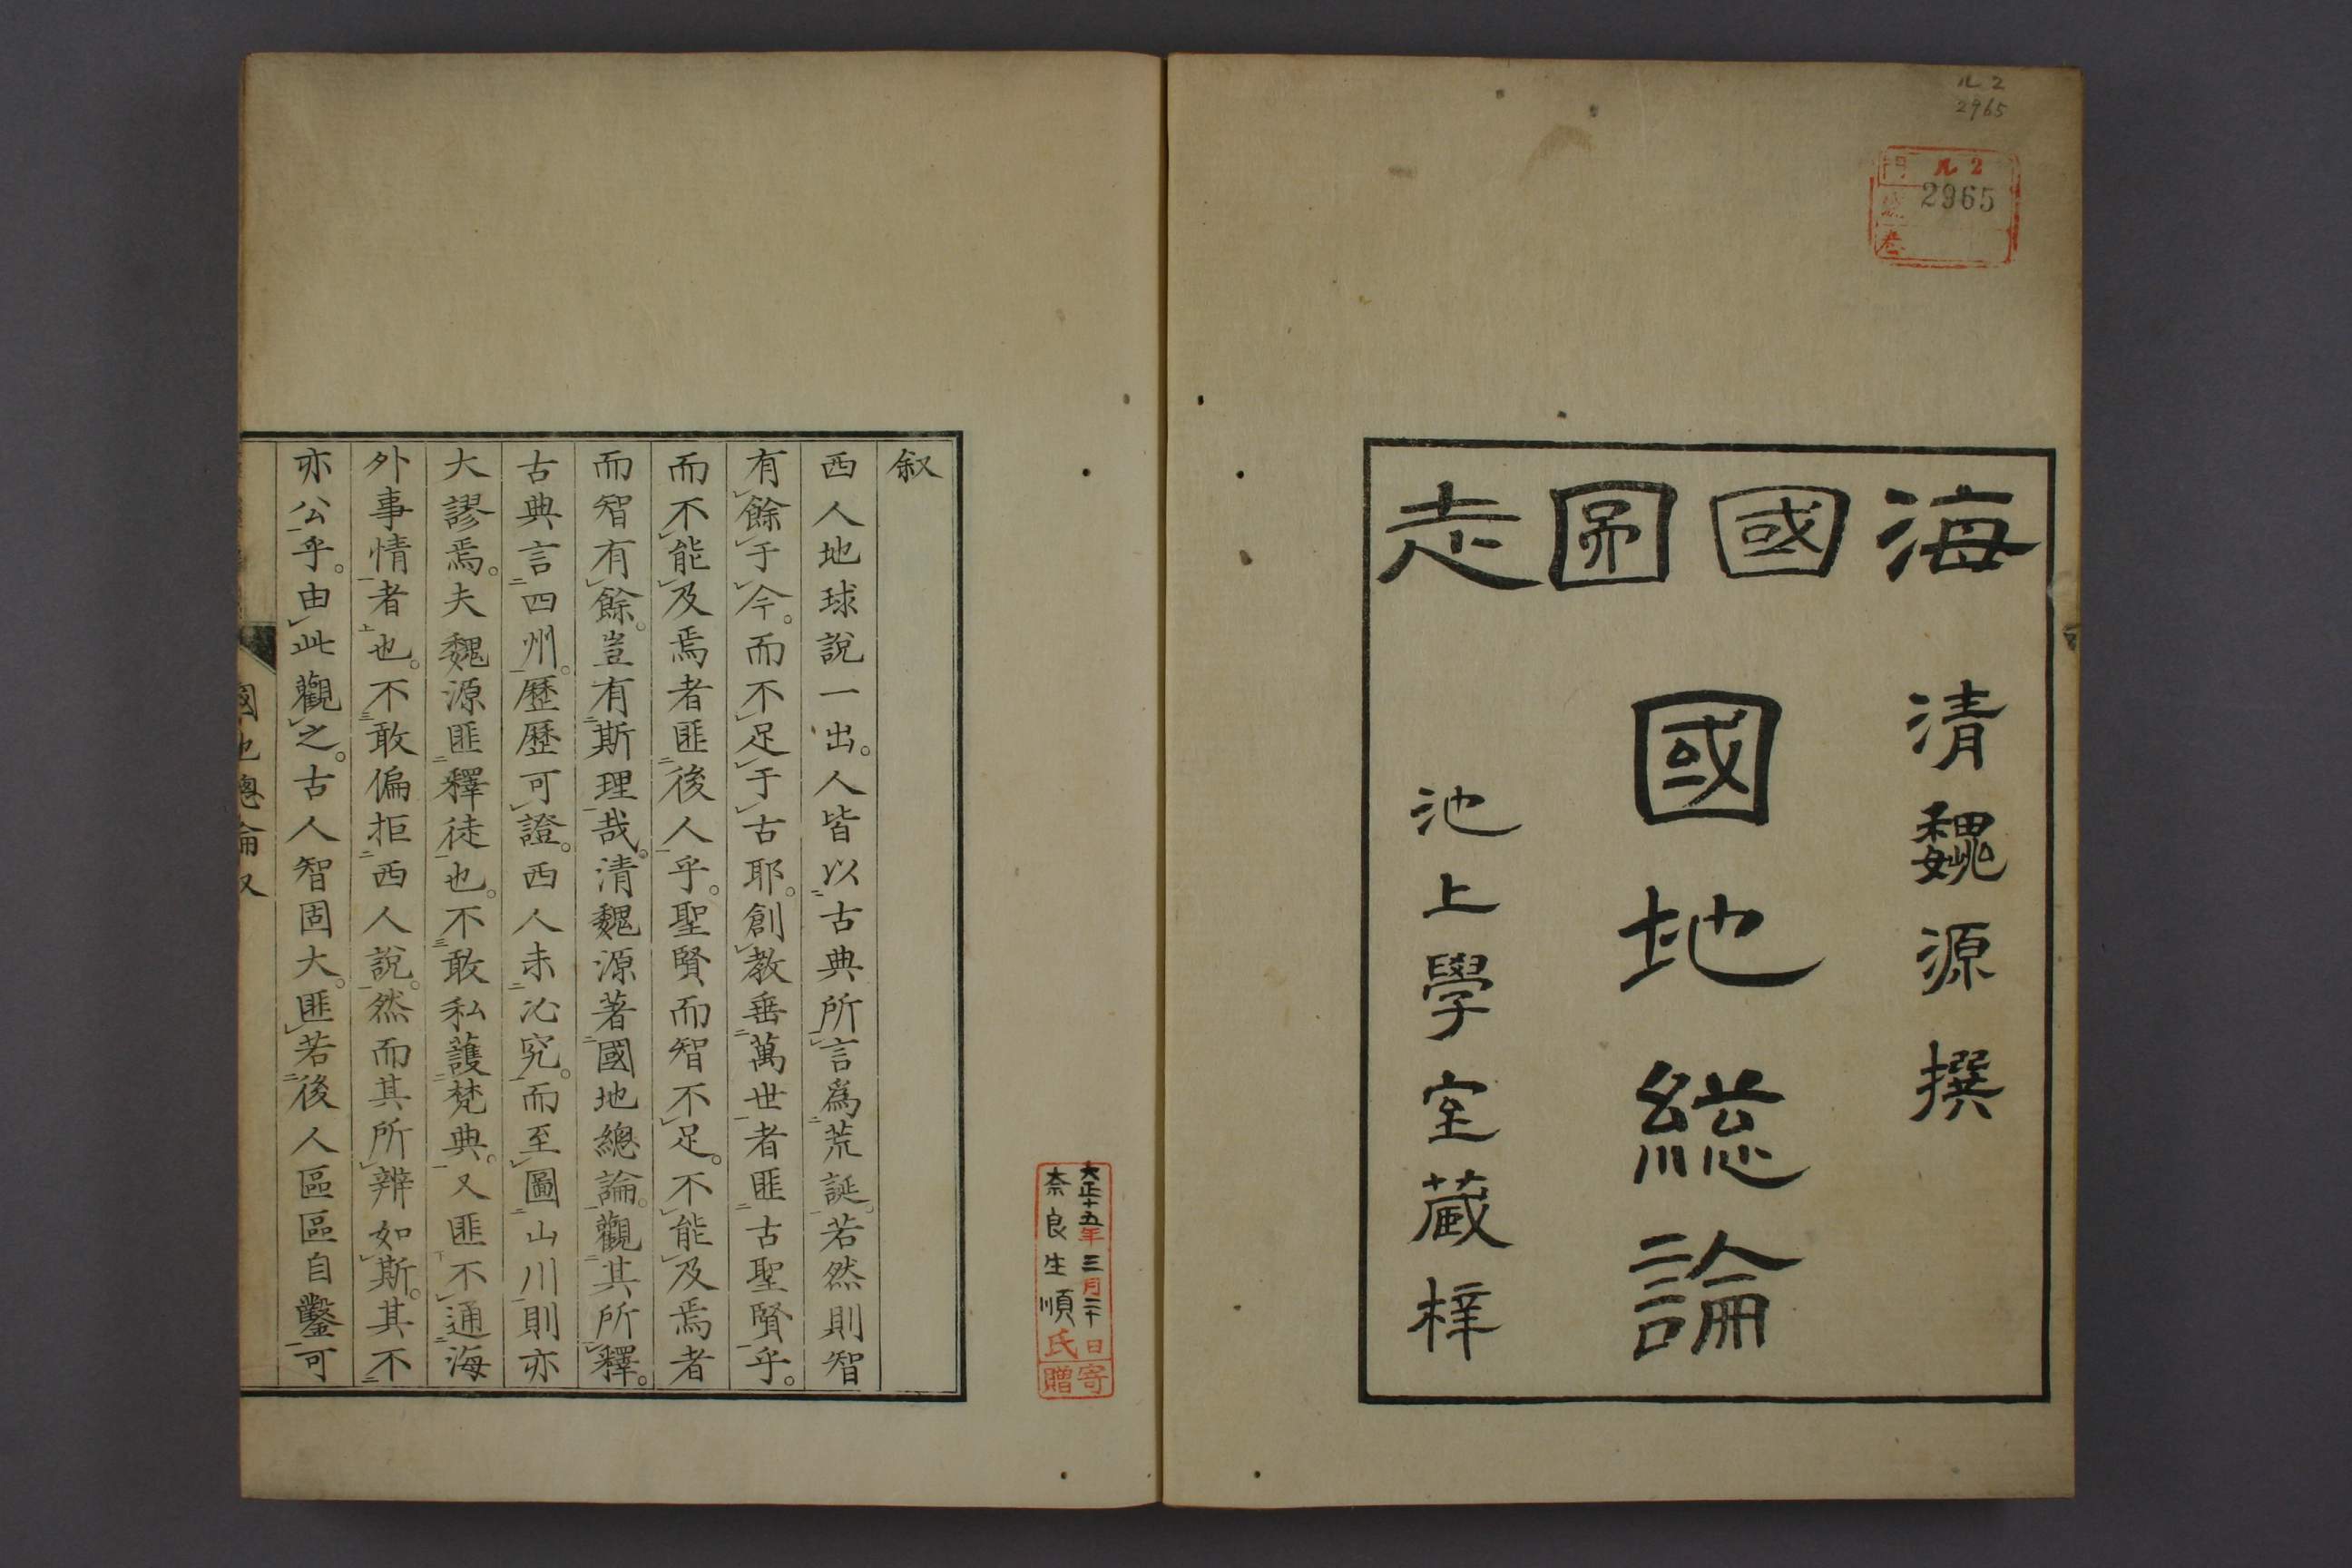 ル2
2965
門 ル2
號 2965
卷
海國圖志
清魏源撰
國地総論
池上學室蔵梓
大正十五年三月二十日寄
奈良生順氏贈
叙
西人地球說一出。人皆以古典所言爲荒誕。若然則智
有餘于今。而不足于古耶。創教垂萬世者匪古聖賢乎。
而不能及焉者匪後人乎。聖賢而智不足。不能及焉者
而智有餘。豈有斯理哉。清魏源著國地總論。觀其所釋。
古典言四州。歷歷可證。西人未必究。而至圖山川則亦
大謬焉。夫魏源匪釋徒也。不敢私護梵典。又匪不通海
外事情者也。不敢偏拒西人說。然而其所辨如斯。其不
亦公乎。由此觀之。古人智固大。匪若後人區區自鑿可
國地總論叙